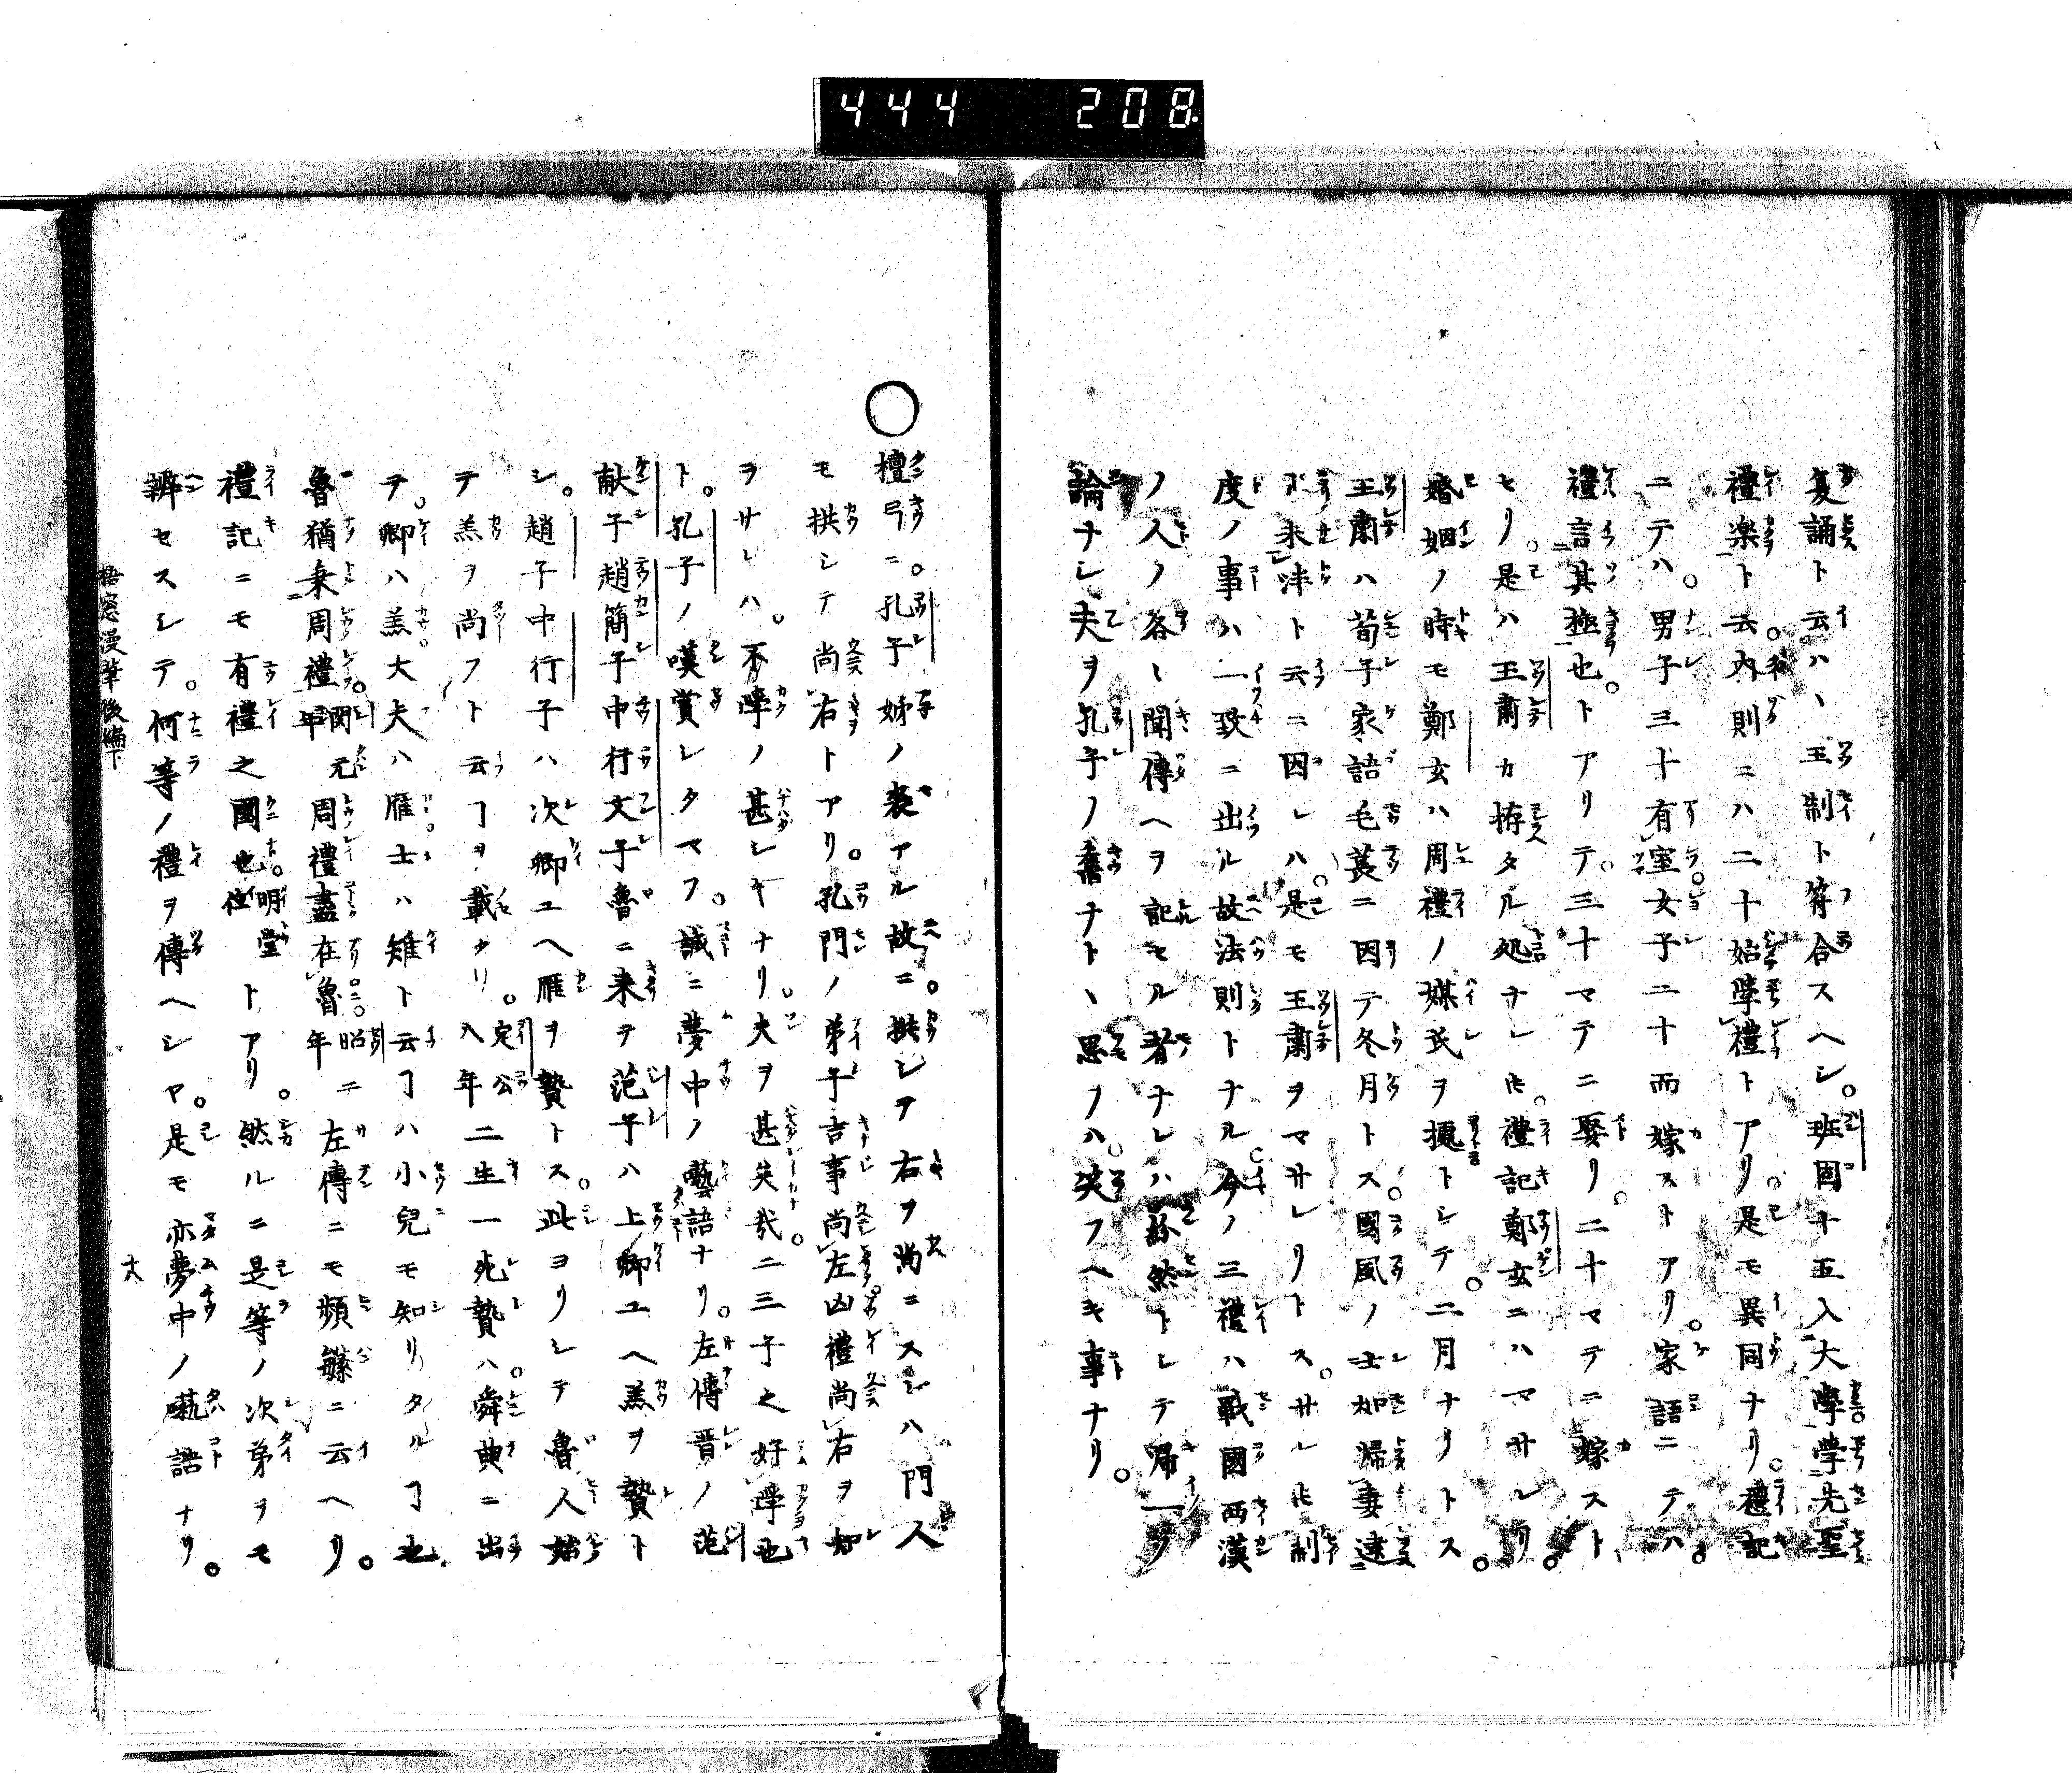 444 208
夏誦ト云ハヽ王制ト符合スヘシ。班固十五入大學學先聖
禮楽ト云。内則ニハ二十始學禮トアリ。是モ異同ナリ。禮記
ニテハ。男子三十有室女子二十而嫁ストアリ。家語ニテハ。
禮言其極也。トアリテ。三十マテニ娶リ。二十マテニ嫁スト
セリ。是ハ王肅カ拵タル処ナレ𪜈。禮記鄭玄ニハマサレリ。
婚姻ノ時モ鄭玄ハ周禮ノ媒氏ヲ據トシテ。二月ナリトス。
王肅ハ荀子家語毛萇ニ因テ冬月トス。國風ノ士如歸妻逮
氷未泮ト云ニ因レハ。是モ王肅ヲマサレリトス。サレ𪜈制
度ノ事ハ一致ニ出ル故法則トナル。今ノ三禮ハ戰國西漢
ノ人ノ各〻聞傳ヘヲ記セル者ナレハ紛然トシテ帰一ノ
論ナシ夫ヲ孔子ノ書ナトヽ思フハ。笑フヘキ事ナリ。
○檀弓ニ。孔子姊ノ喪アル故ニ。拱シヲ右ヲ尚ニスシハ門人
モ拱シテ尚右トアリ。孔門ノ弟子吉事尚左凶禮尚右ヲ知
ヲサレハ。不學ノ甚シキナリ。夫ヲ甚矣哉二三子之好學也
ト。孔子ノ嘆賞シタマフ。誠ニ夢中ノ藝語ナリ。左傳晋ノ范
献子趙簡子中行文子魯ニ来ヲ范子ハ上卿ユヘ羔ヲ贄ト
シ。趙子中行子ハ次卿ユヘ雁ヲ贄トス。此ヨリシテ魯人始
テ羔ヲ尚フト云ヿヲ載タリ。定公八年二生一死贄ハ。舜典ニ出
ヲ。卿ハ羔大夫ハ雁士ハ雉ト云ヿハ小兒モ知リタルヿ也。
魯猶秉周禮。閔元年周禮盡在魯。昭二年左傳ニモ頻繇ニ云ヘリ。
禮記ニモ有禮之國也。明堂位トアリ。然ルニ是等ノ次弟ヲモ
辨セスシテ。何等ノ禮ヲ傳ヘシヤ。是モ亦夢中ノ囈語ナリ。
梧窓漫筆後編下
十六